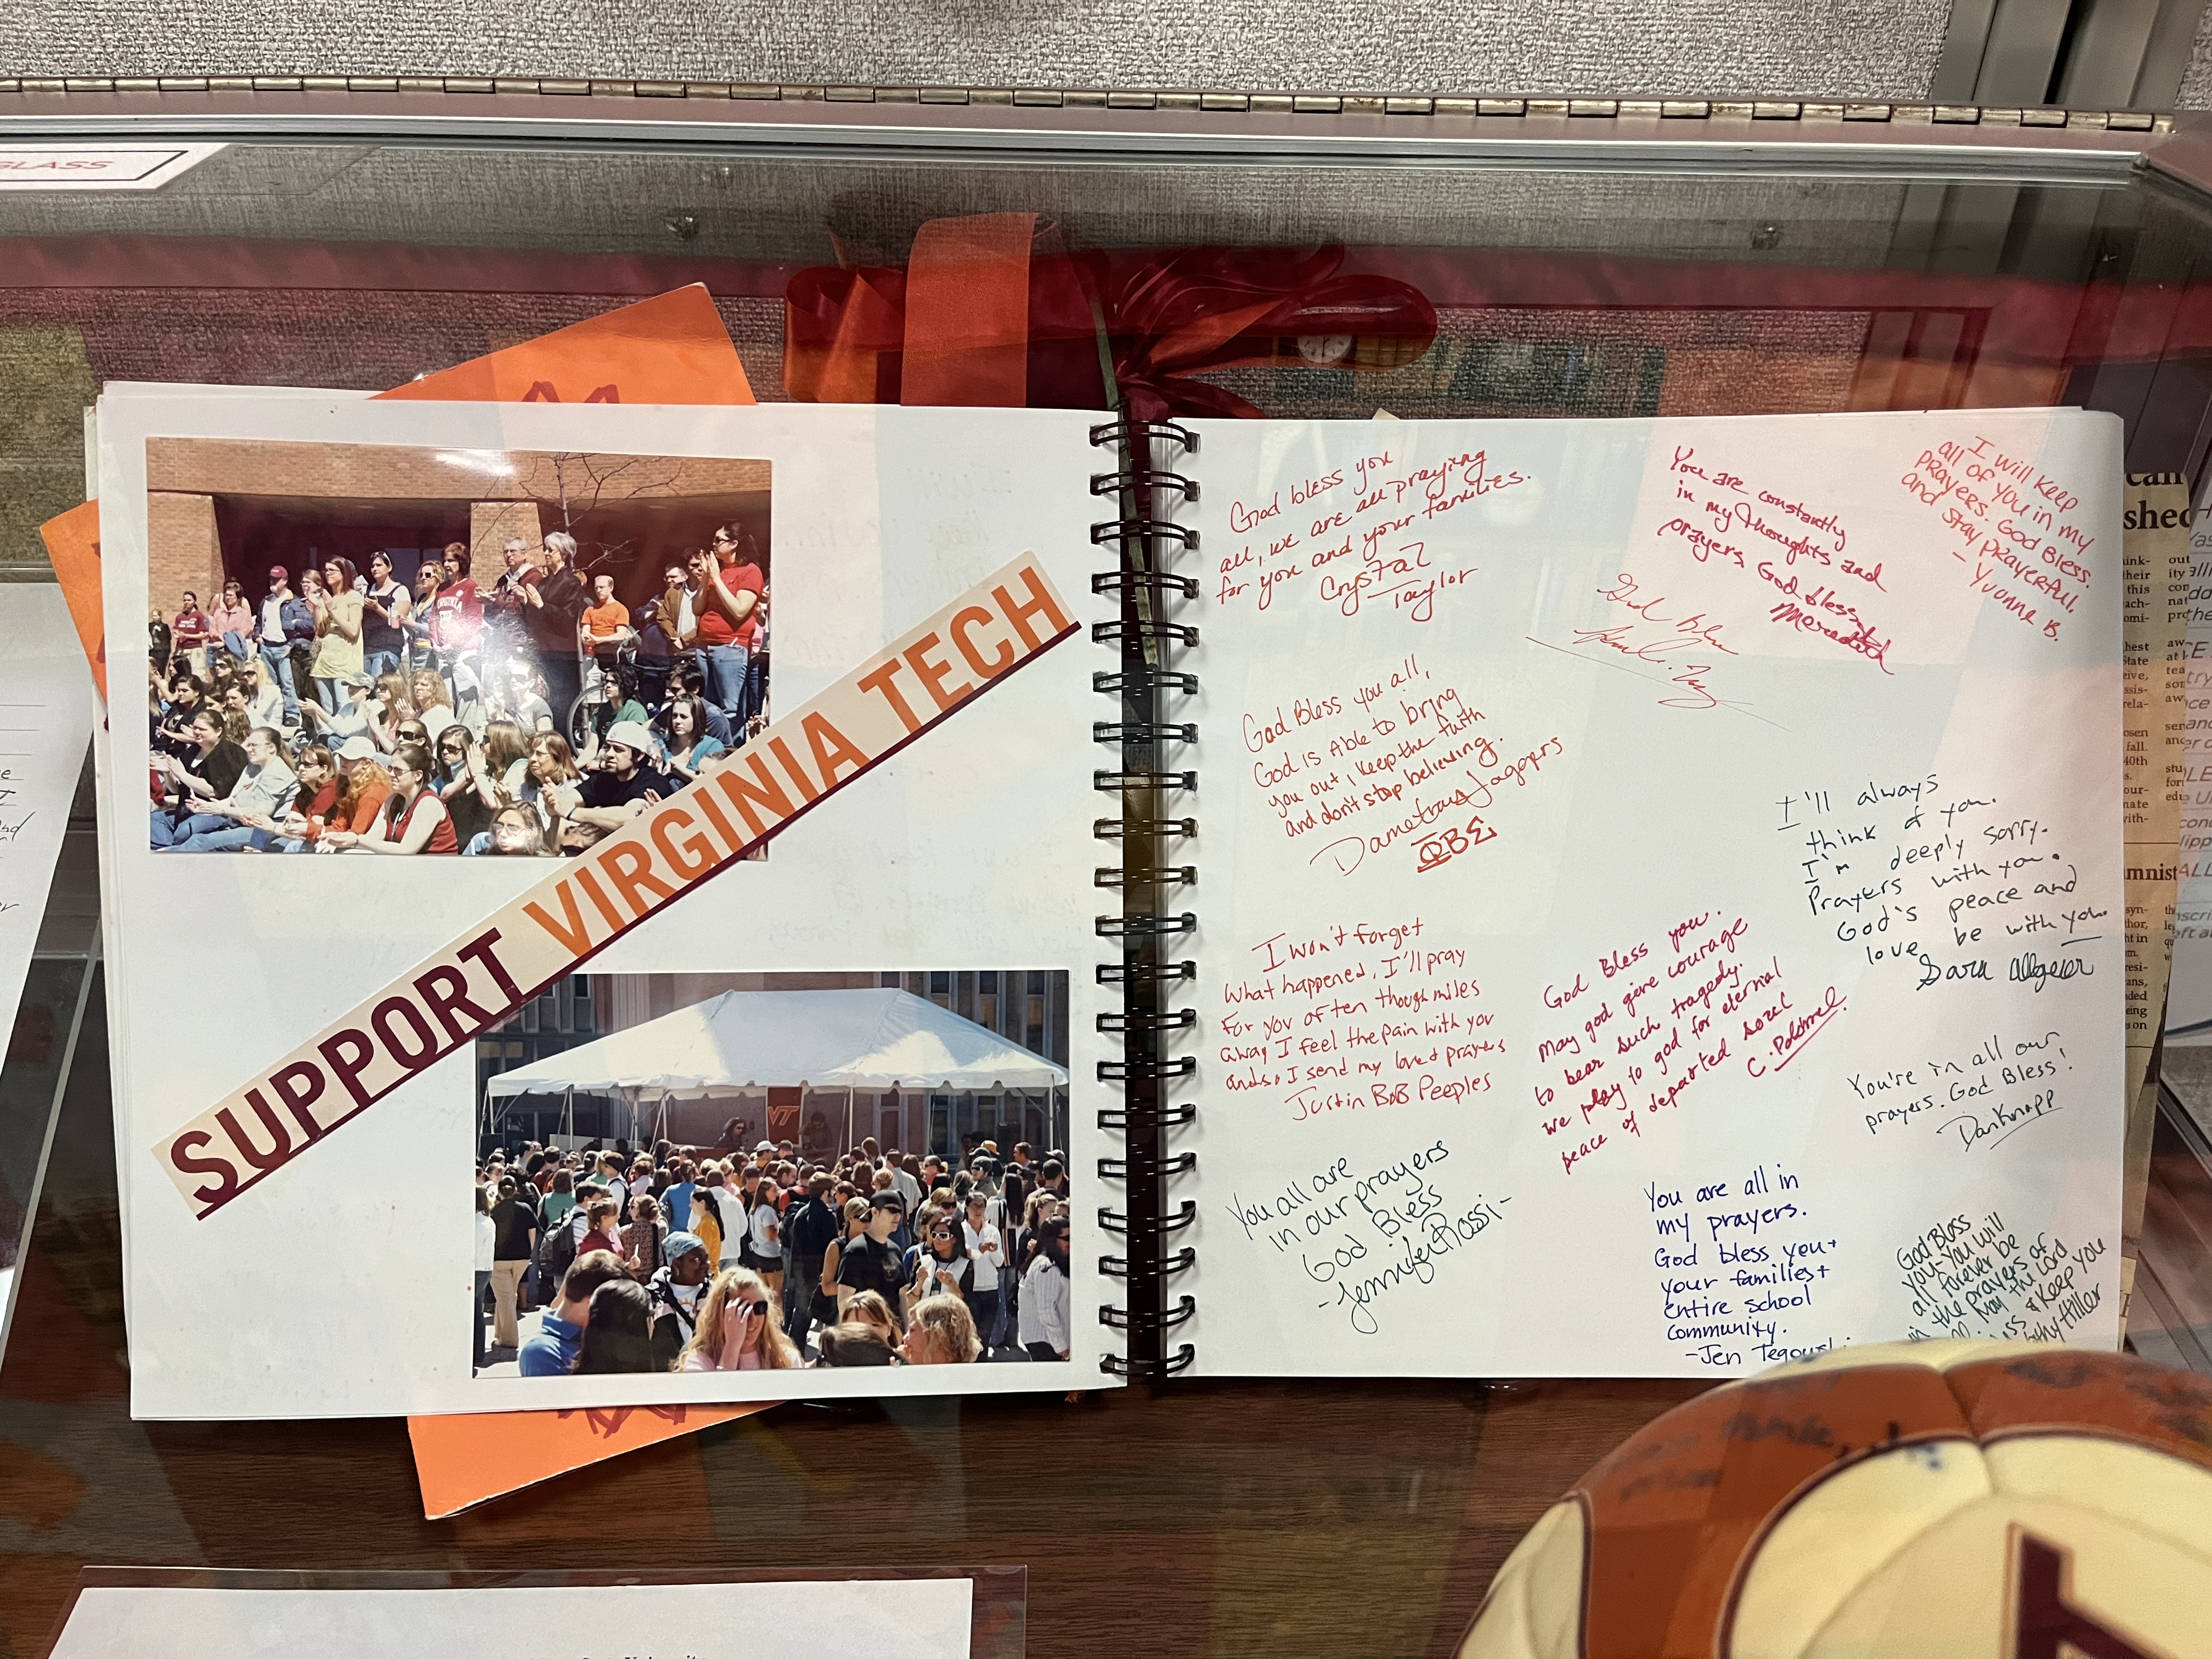 GLASS
SUPPORT VIRGINIA TECH
VT
God bless you
all, we are all praying
for you and your families.
Crystal
Taylor
You are constantly
in my thoughts and
prayers, God bless
Meredith
I will keep
all of you in my
prayers. God Bless.
and stay prayerful.
- Yvonne B.
God Bless
God Bless you all,
God is Able to bring
you out, keep the faith
and don't stop believing.
Jaggers
ΦΒΣ
I'll always
think of you.
I'm deeply sorry.
Prayers with you.
God's peace and
love be with you.
Sara Allgeier
I won't forget
what happened, I'll pray
for you often though miles
away I feel the pain with you
and so I send my love & prayers
Justin BoB Peeples
God Bless you.
May god give courage
to bear such tragedy.
we pray to god for eternal
peace of departed soul
You're in all our
prayers. God Bless!
Dan Knapp
You all are
in our prayers
God Bless
- Jennifer Rossi -
You are all in
my prayers.
God bless you +
your families +
entire school
community.
- Jen
God Bless
you - You will
all forever be
in the prayers of
May the Lord
& Keep you
Hiller